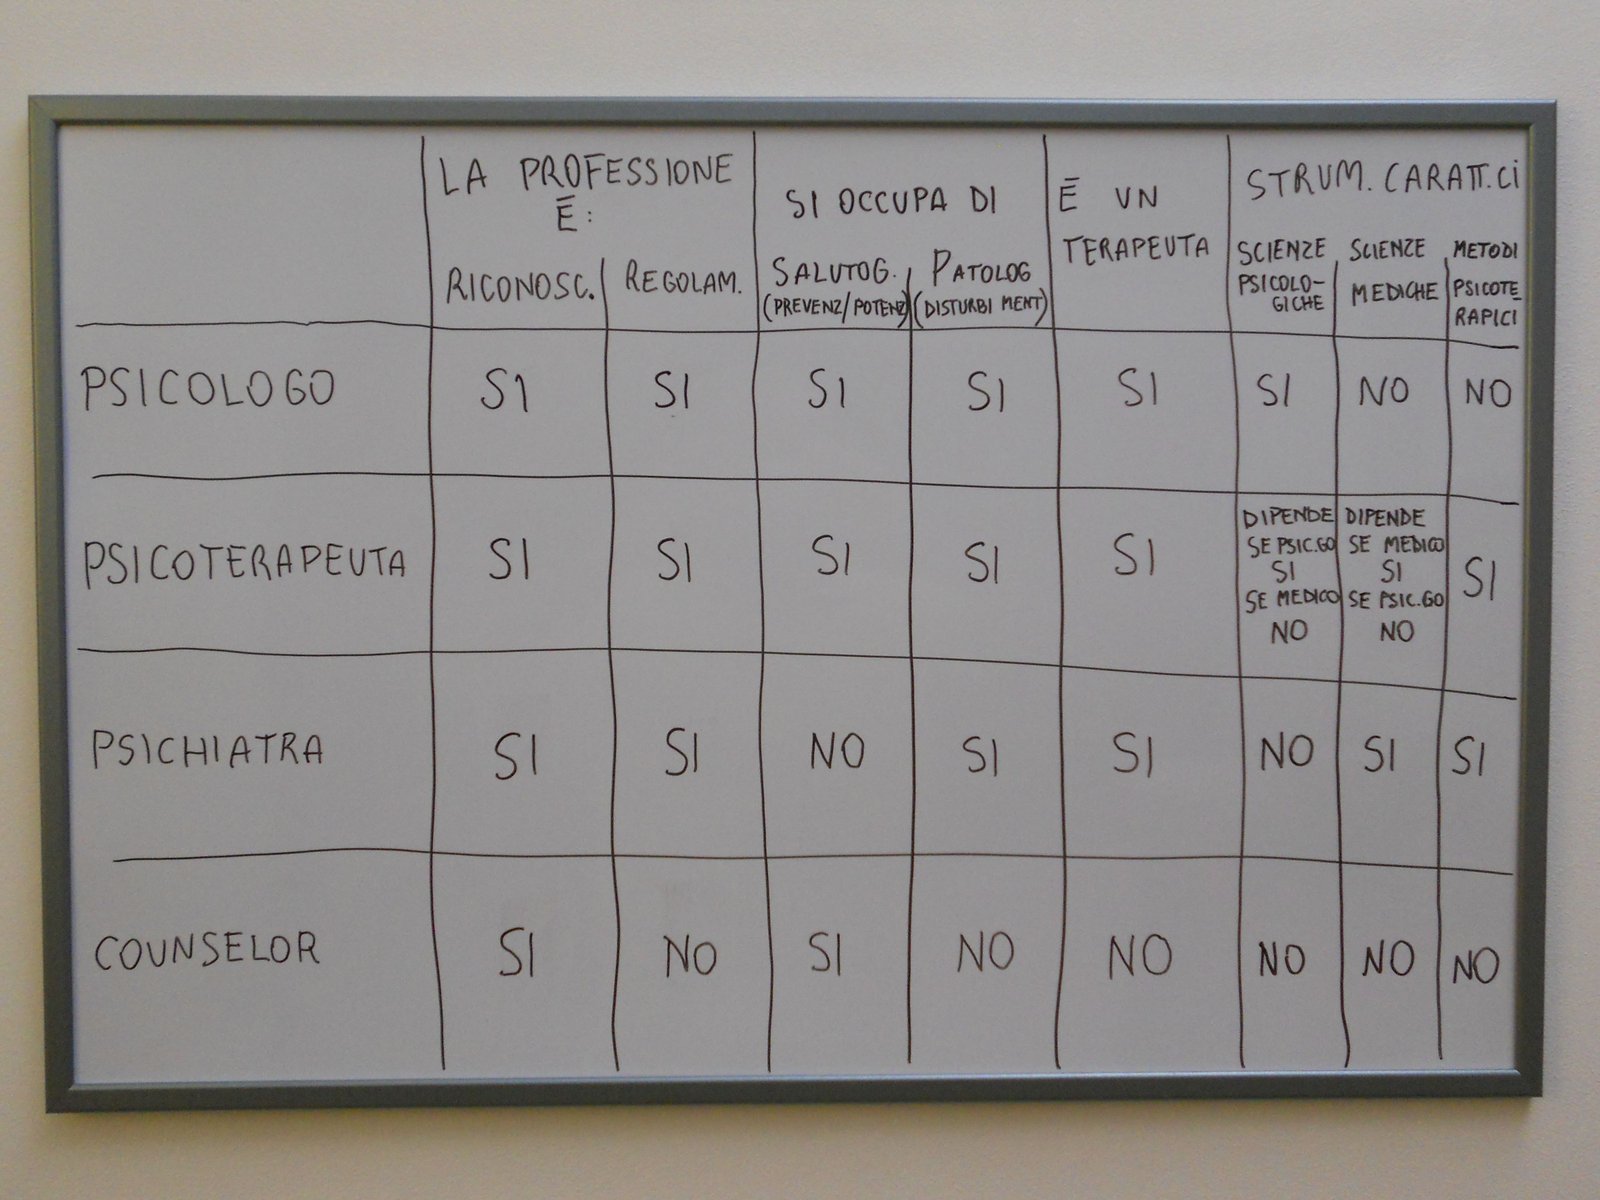 LA PROFESSIONE
Ē:
RICONOSC. REGOLAM.
SI OCCUPA DI
SALUTOG. PATOLOG
(PREVENZ/POTENZ) (DISTURBI MENT)
Ē UN
TERAPEUTA
STRUM. CARATT.CI
SCIENZE PSICOLO-
GICHE
SCIENZE
MEDICHE
METODI
PSICOTE
RAPICI
PSICOLOGO SI SI SI SI SI SI NO NO
PSICOTERAPEUTA SI SI SI SI SI
DIPENDE
SE PSIC.GO
SI
SE MEDICO
NO
DIPENDE
SE MEDICO
SI
SE PSIC.GO
NO
SI
PSICHIATRA SI SI NO SI SI NO SI SI
COUNSELOR SI NO SI NO NO NO NO NO